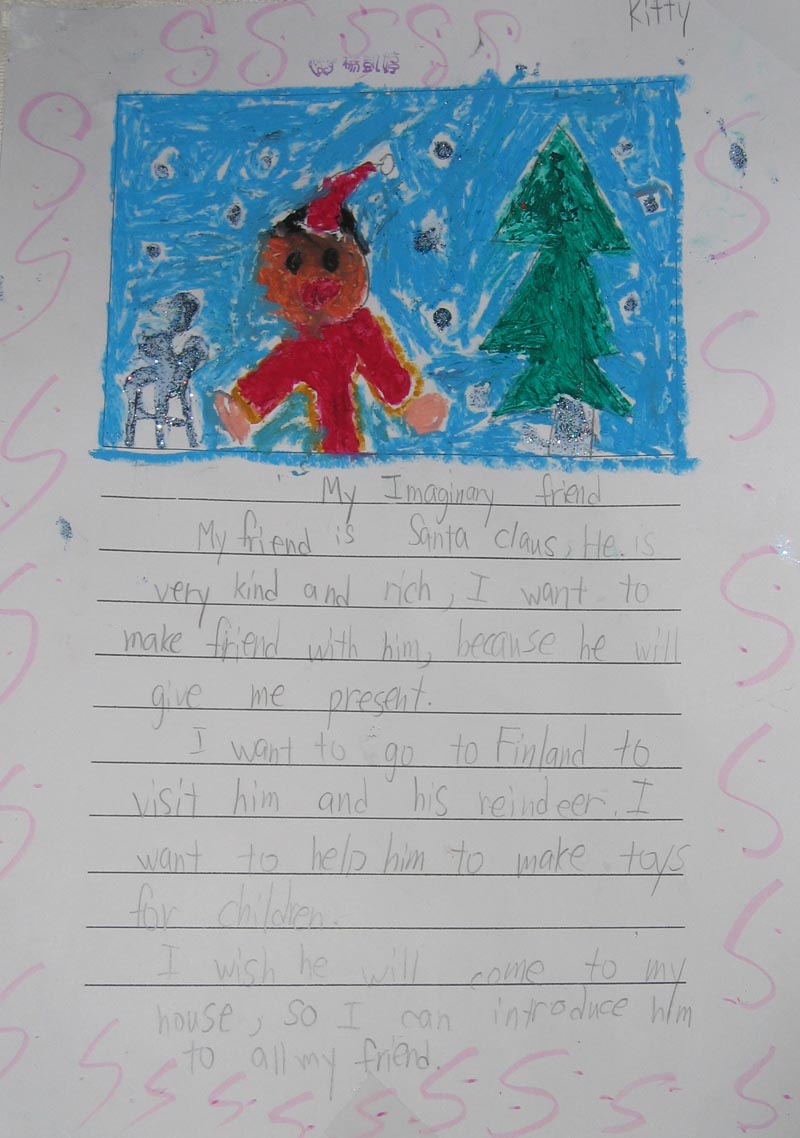 Kitty
My Imaginary friend
My friend is Santa claus, He is
very kind and rich, I want to
make friend with him, because he will
give me present.
I want to go to Finland to
visit him and his reindeer. I
want to help him to make toys
for children.
I wish he will come to my
house, so I can introduce him
to all my friend.